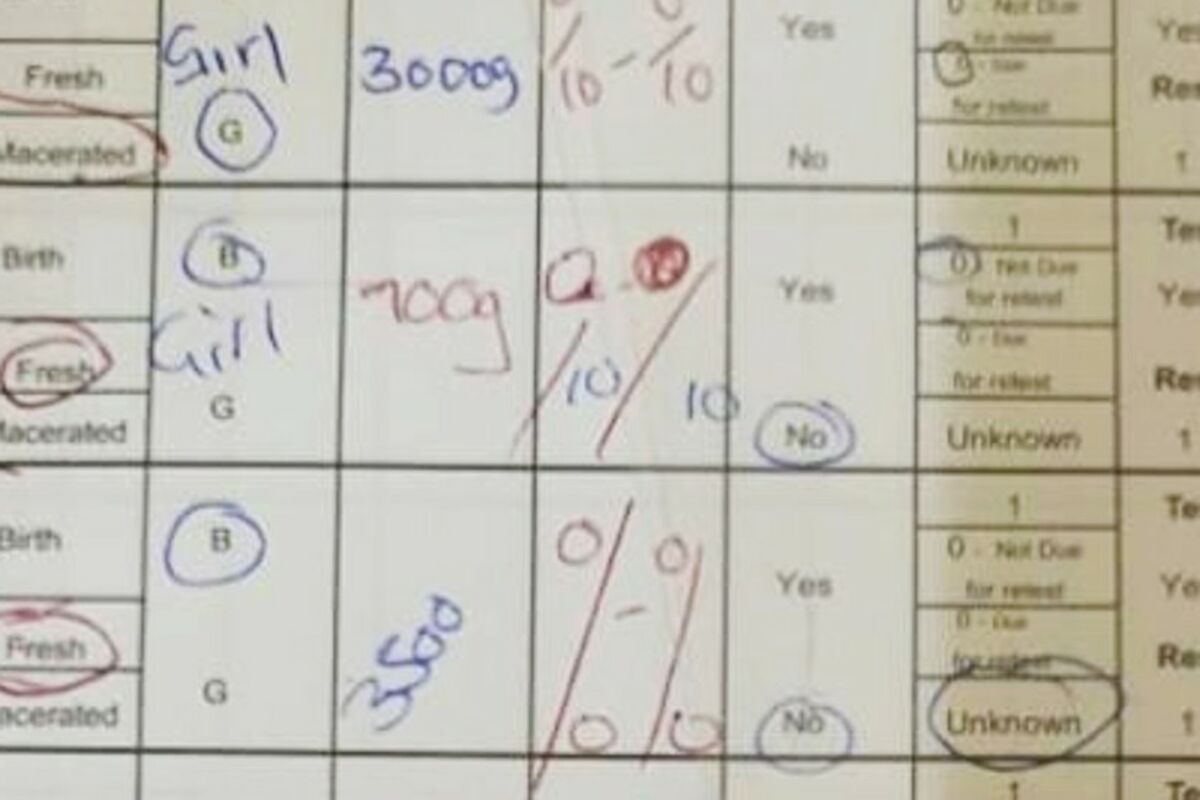 0 - Not Due
Girl
Yes
Yes
for retest
0 - Due
Fresh
3000g
10 - 10
Res
for retest
G
Macerated
No
Unknown
1
1
Te
Birth
B
0 - Not Due
Yes
Ye
for retest
700g
Girl
0 - Due
Fresh
10
10
for retest
Res
G
Macerated
No
Unknown
1
1
Te
Birth
B
0
0
0 - Not Due
Yes
Ye
for retest
0 - Due
3500
Fresh
for retest
Re
G
acerated
0
0
No
Unknown
1
1
Te